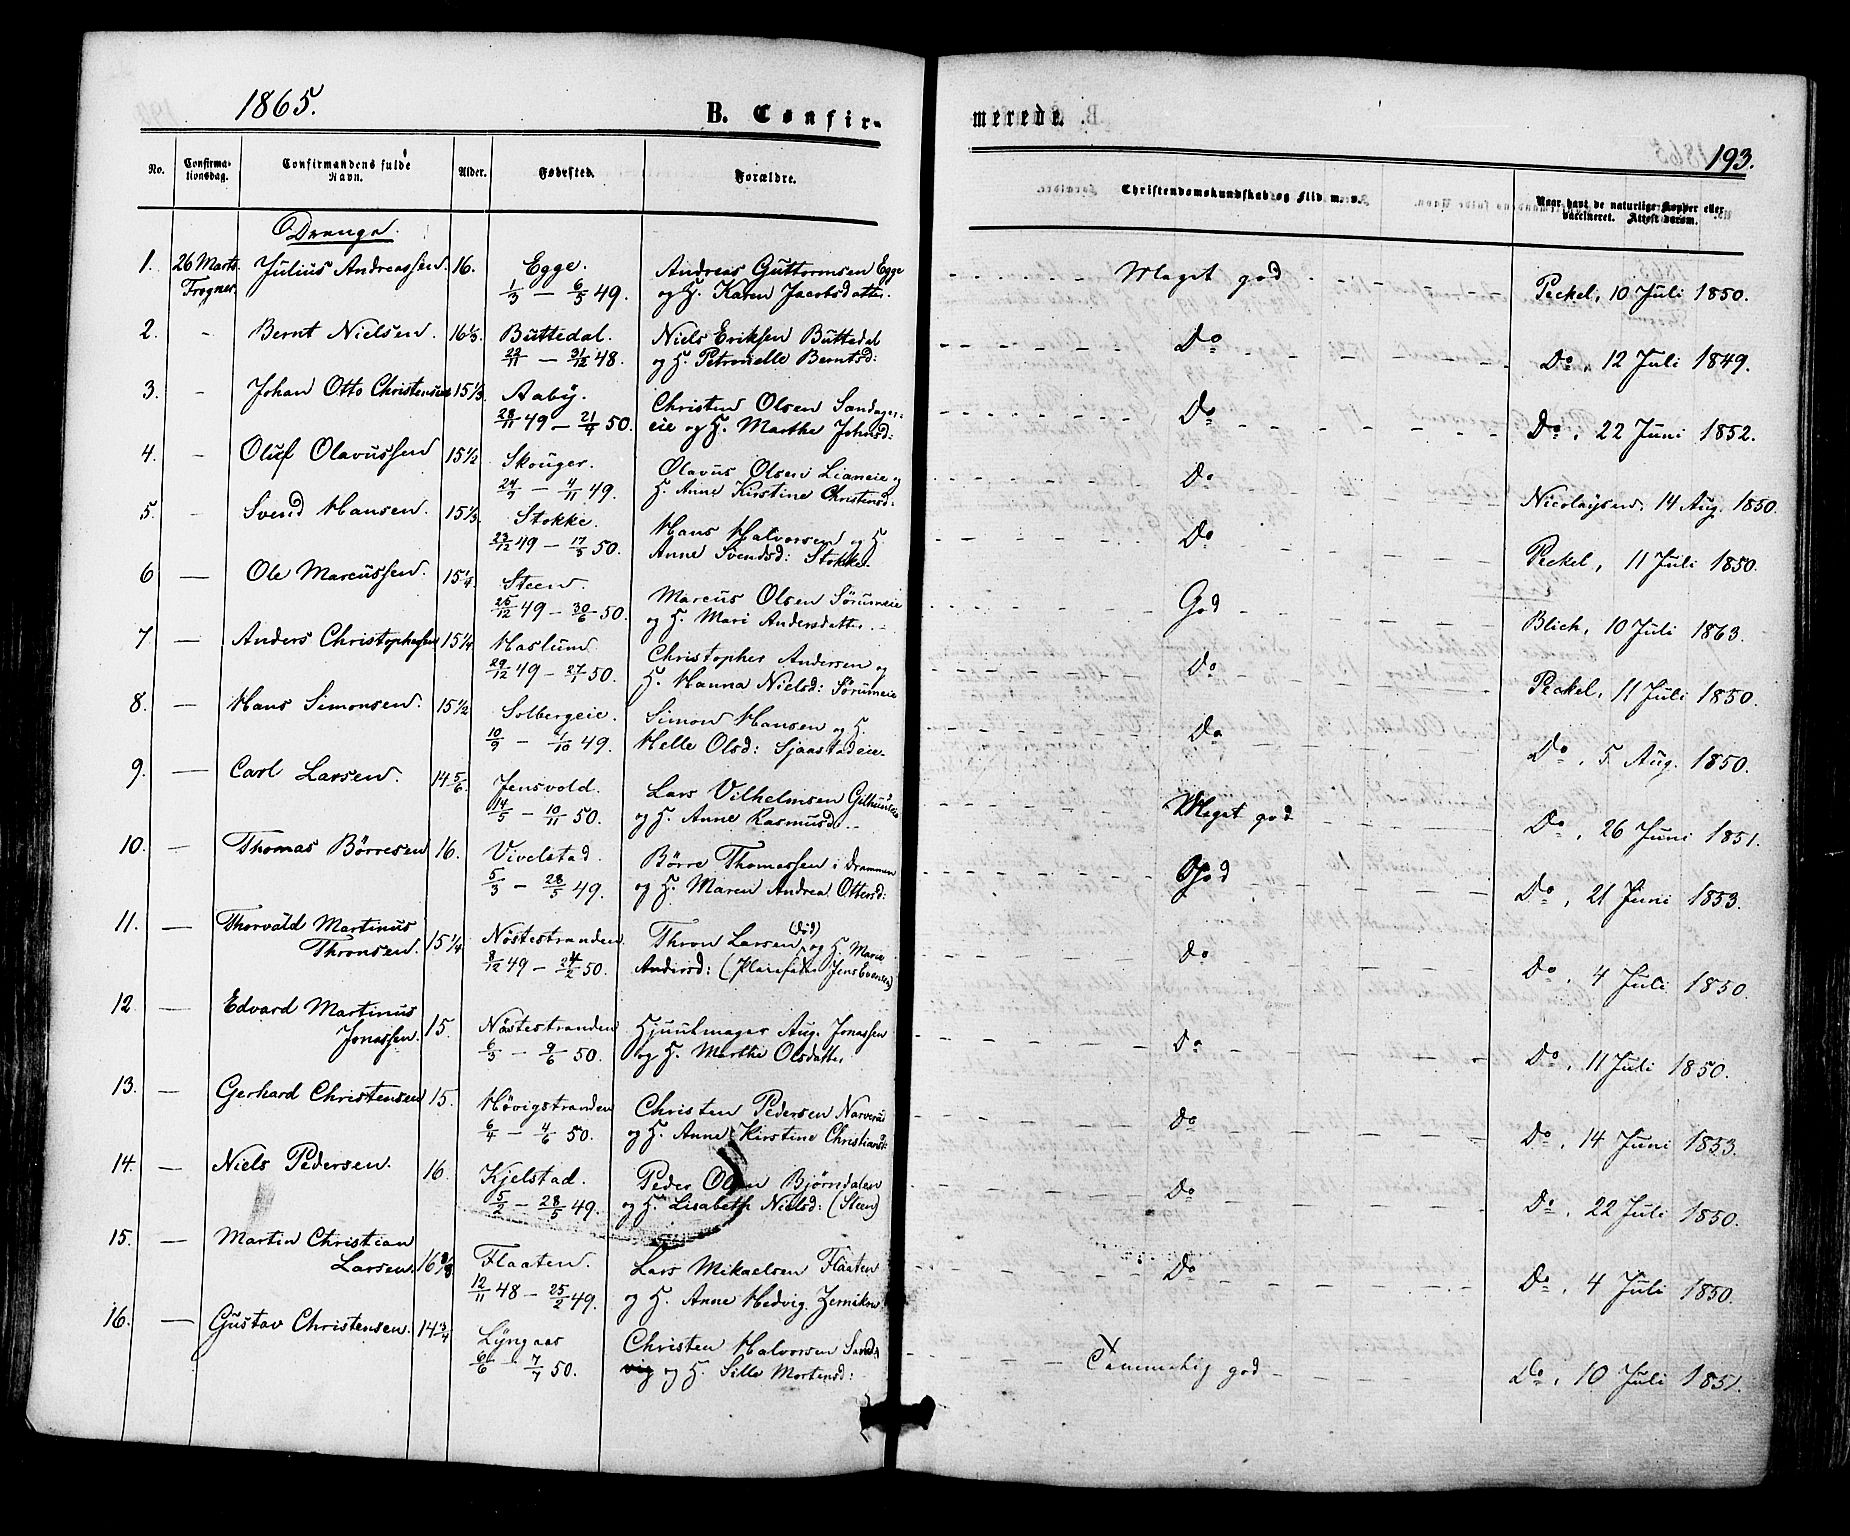 1865.
B. Confir-
merede.
193.
No.
Confirma-
tionsdag.
Confirmandens fulde
Navn.
Alder.
Fødested.
Forældre.
Christendomskundskab og Flid m. v.
Naar havt de naturlige Kopper eller
vaccineret. Attest derom.
Drenge.
1. 26 Marts. Julius Andreassen. 16. Egge. Andreas Guttormsen Egge Meget god Peckel, 10 Juli 1850.
Frogner. 1/3 — 6/5 49. og H. Karen Jacobsdatter.
2. - Bernt Nielsen. 16 1/3 Buttedal. Niels Eriksen Buttedal Do Do, 12 Juli 1849.
22/11 — 31/12 48. og H. Petronelle Berntsd:
3. - Johan Otto Christensen 15 1/3 Aaby. Christen Olsen Sandager- Do Do, 22 Juni 1852.
28/11 49 — 21/4 50. eie og H. Marthe Johnsd:
4. - Oluf Olavussen 15 1/2 Skouger. Olavus Olsen Lianeie og Do Nicolaysen, 14 Aug. 1850.
24/9 — 4/11 49. H. Anne Kirstine Christensd.
5. - Svend Hansen. 15 1/3 Stokke. Hans Halvorsen og H. Do Peckel, 11 Juli 1850.
23/12 49 — 17/3 50. Anne Svendsd: Stokke.
6 — Ole Marcussen. 15 1/4 Steen. Marcus Olsen Sørumeie God Blich, 10 Juli 1863.
26/12 49 — 30/6 50. og H. Mari Andersdatter.
7 — Anders Christophersen 15 1/4 Haslum. Christopher Andersen og Do Peckel, 11 Juli 1850.
29/12 49 — 27/1 50. H. Hanna Nielsd: Sørumeie
8. — Hans Simonsen. 15 1/2 Solbergeie. Simon Hansen og H. Do Do, 5 Aug. 1850.
10/9 — 1/10 49. Helle Olsd: Sjaastadeie
9. — Carl Larsen. 14 5/6 Jensvold. Lars Vilhelmsen Gilhuuseie Meget god Do, 26 Juni 1851.
14/5 — 10/11 50. og H. Anne Rasmusd.
10. — Thomas Børresen 16. Vivelstad. Børre Thomassen i Drammen God Do, 21 Juni 1853.
5/3 — 28/5 49. og H. Maren Andrea Ottersd:
11. — Thorvald Martinus Nøstestranden. Thron Larsen (død) og H. Marie Do Do, 4 Juli 1850.
Thronsen. 15 1/4 8/12 49 — 24/2 50. Andersd: (Pleiefader Jens Evensen)
12 — Edvard Martinus Nøstestranden Hjuulmager Aug. Jonassen Do Do, 11 Juli 1850.
Jonassen. 15. 6/3 — 9/6 50. og H. Marthe Olsdatter
13. — Gerhard Christensen 15. Høvigstranden Christen Pedersen Narverud Do Do, 14 Juni 1853.
6/4 — 4/6 50. og H. Anne Kirstine Christiansd:
14. — Niels Pedersen. 16. Kjelstad. Peder Olsen Bjørndalen Do Do, 22 Juli 1850.
5/2 — 28/5 49. og H. Lisabeth Nielsd: (Steen)
15. — Martin Christian Flaaten. Lars Mikaelsen Flaaten Do Do, 4 Juli 1850.
Larsen. 16 12/11 48 — 25/2 49. og H. Anne Hedvig
16. — Gustav Christensen. 14 3/4 Lyngaas Christen Halvorsen Temmelig god Do, 10 Juli 1851.
6/6 — 7/7 50. og H. Sille Mortensd: